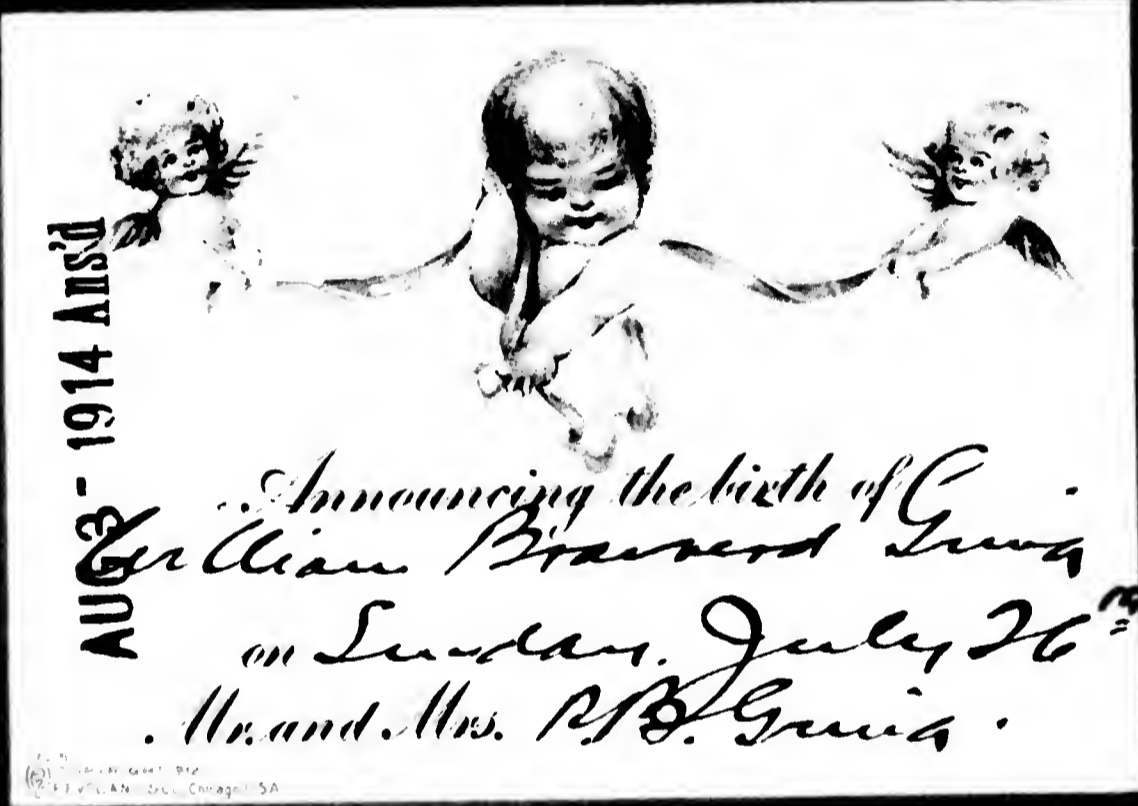 AUG 3 - 1914 Ans'd
Announcing the birth of
William Brainerd
on Sunday. July 26
Mr. and Mrs. R.B.
Chicago